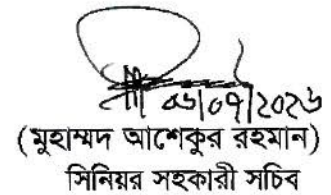 ০৬/০৭/২০২৬
(মুহাম্মদ আশেকুর রহমান)
সিনিয়র সহকারী সচিব